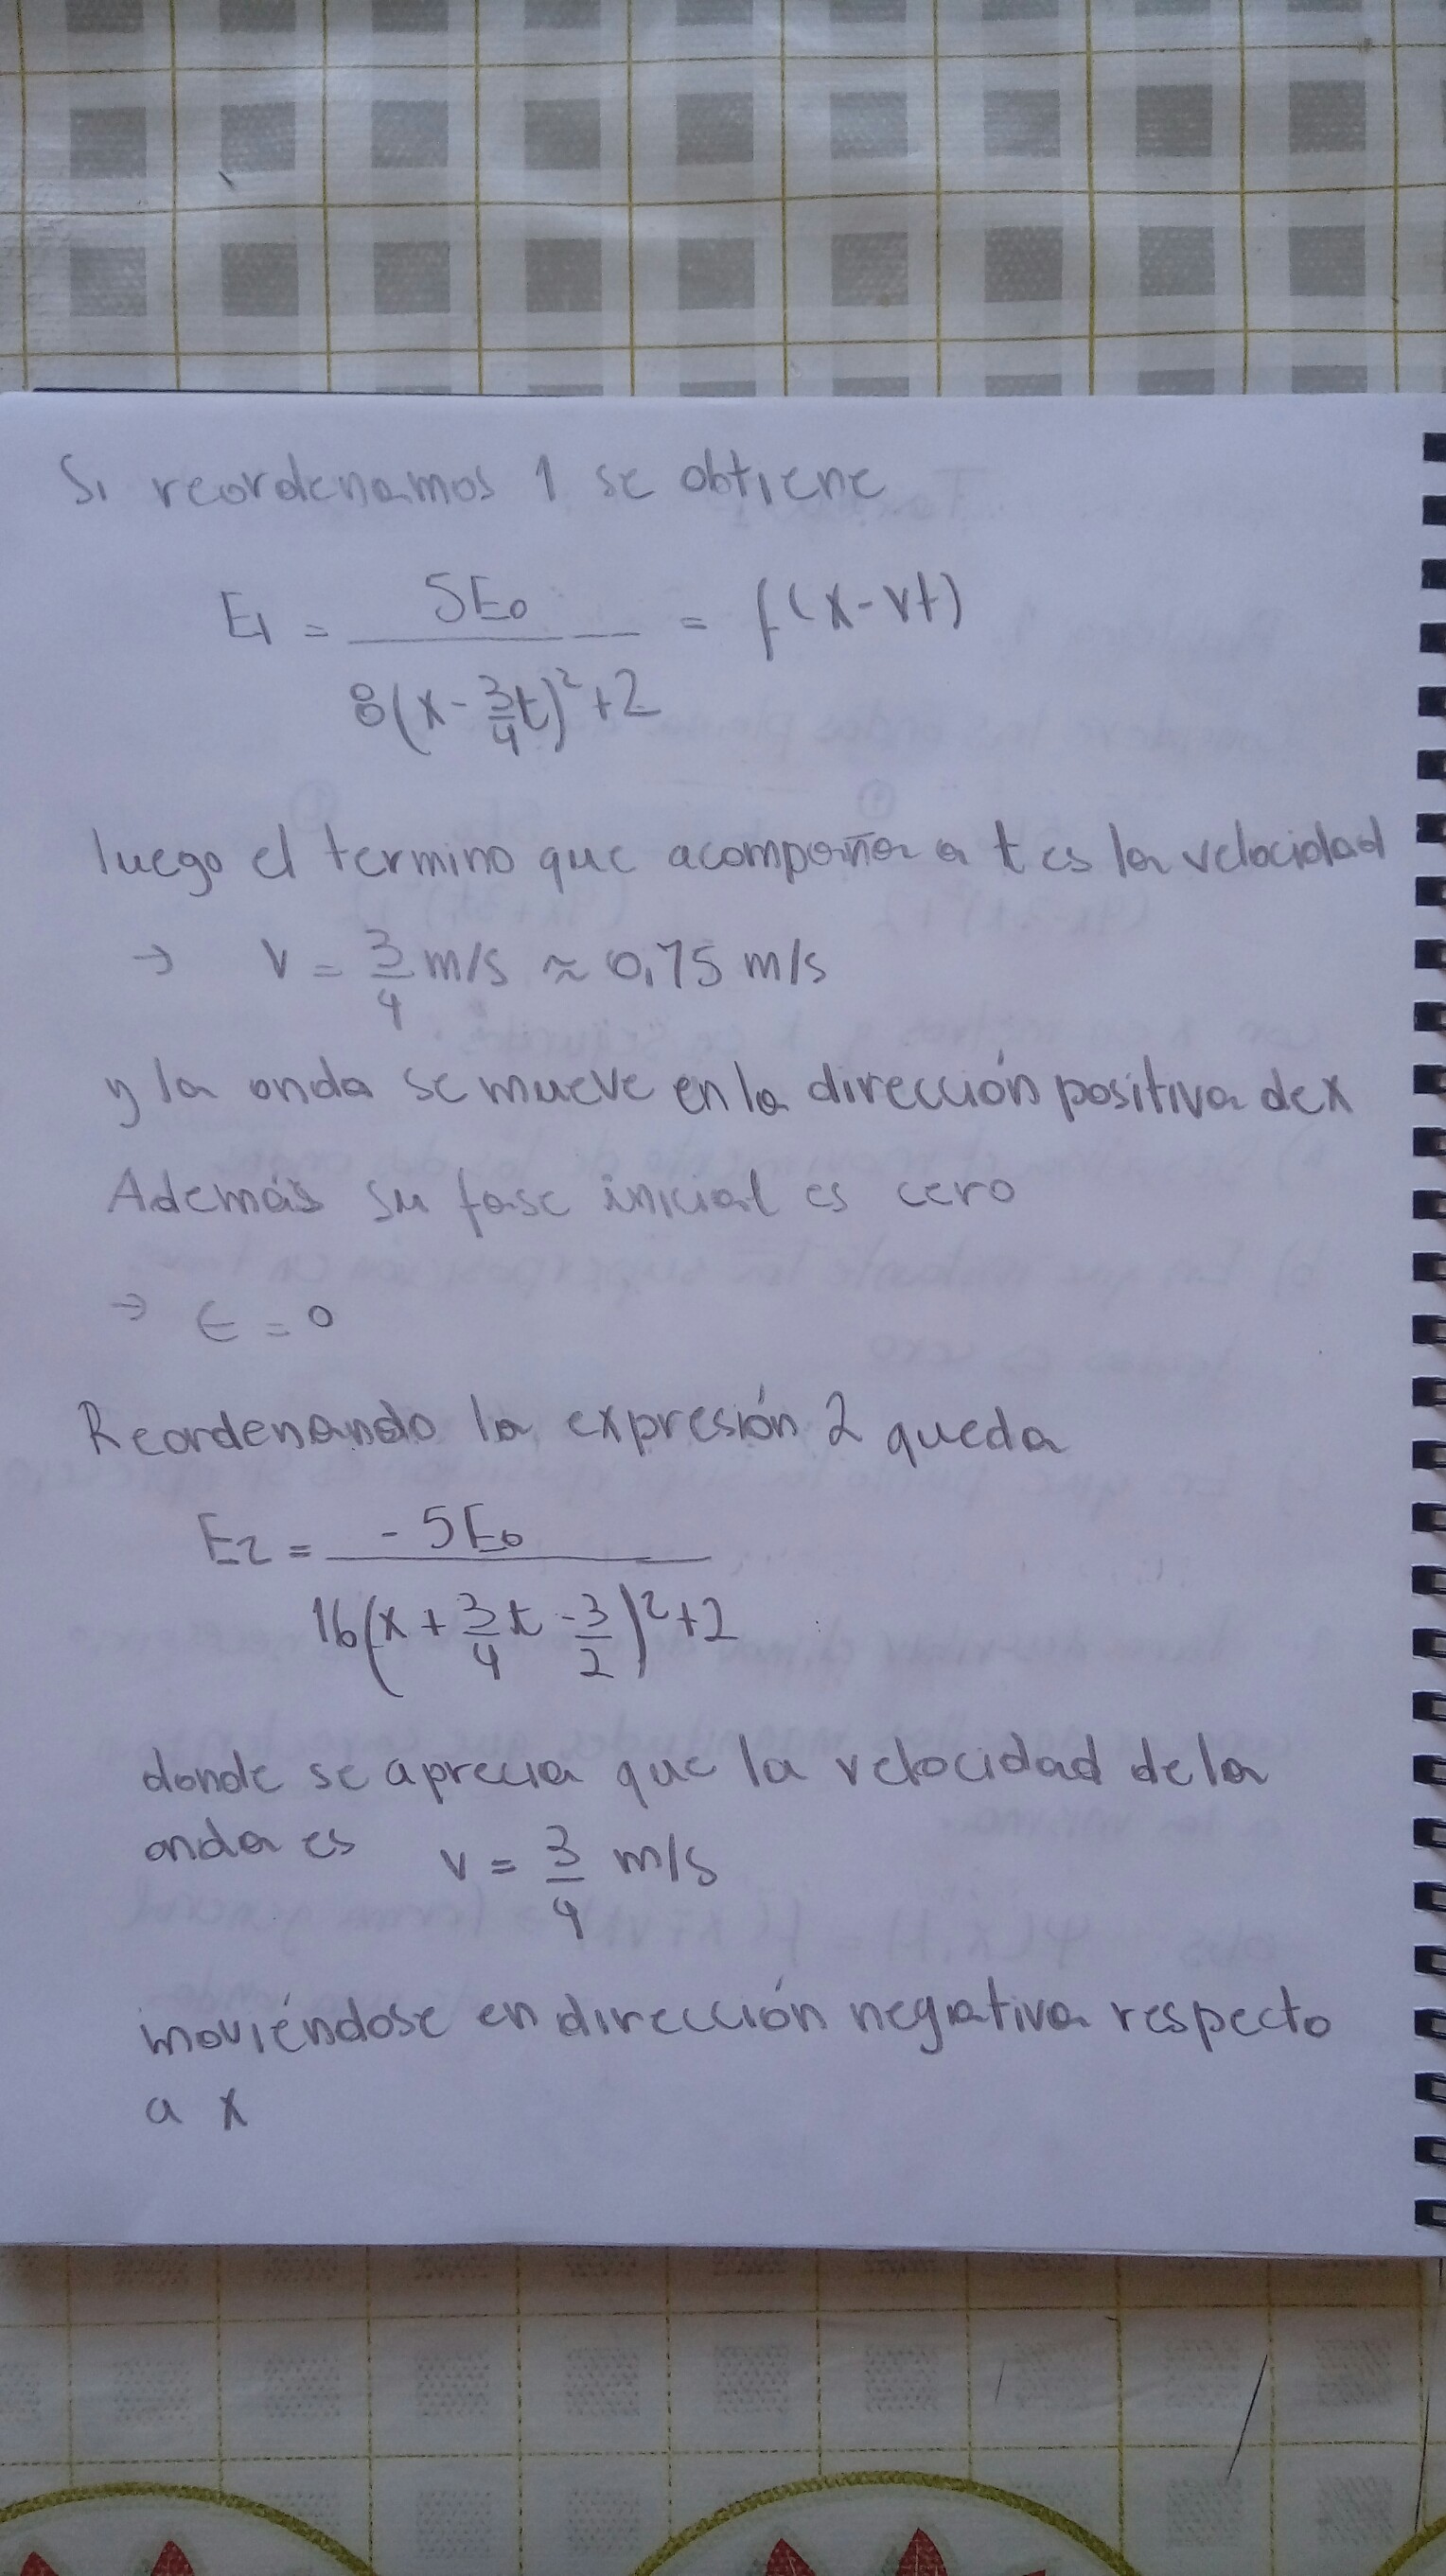 Si reordenamos 1 se obtiene
E1 = 5E0 / 8(x - 3/4 t)² + 2 = f(x - vt)
luego el termino que acompaña a t es la velocidad
→ v = 3/4 m/s ≈ 0,75 m/s
y la onda se mueve en la dirección positiva de x
Además su fase inicial es cero
→ ϵ = 0
Reordenando la expresión 2 queda
E2 = -5E0 / 16(x + 3/4 t - 3/2)² + 2
donde se aprecia que la velocidad de la
onda es v = 3/4 m/s
moviéndose en dirección negativa respecto
a x